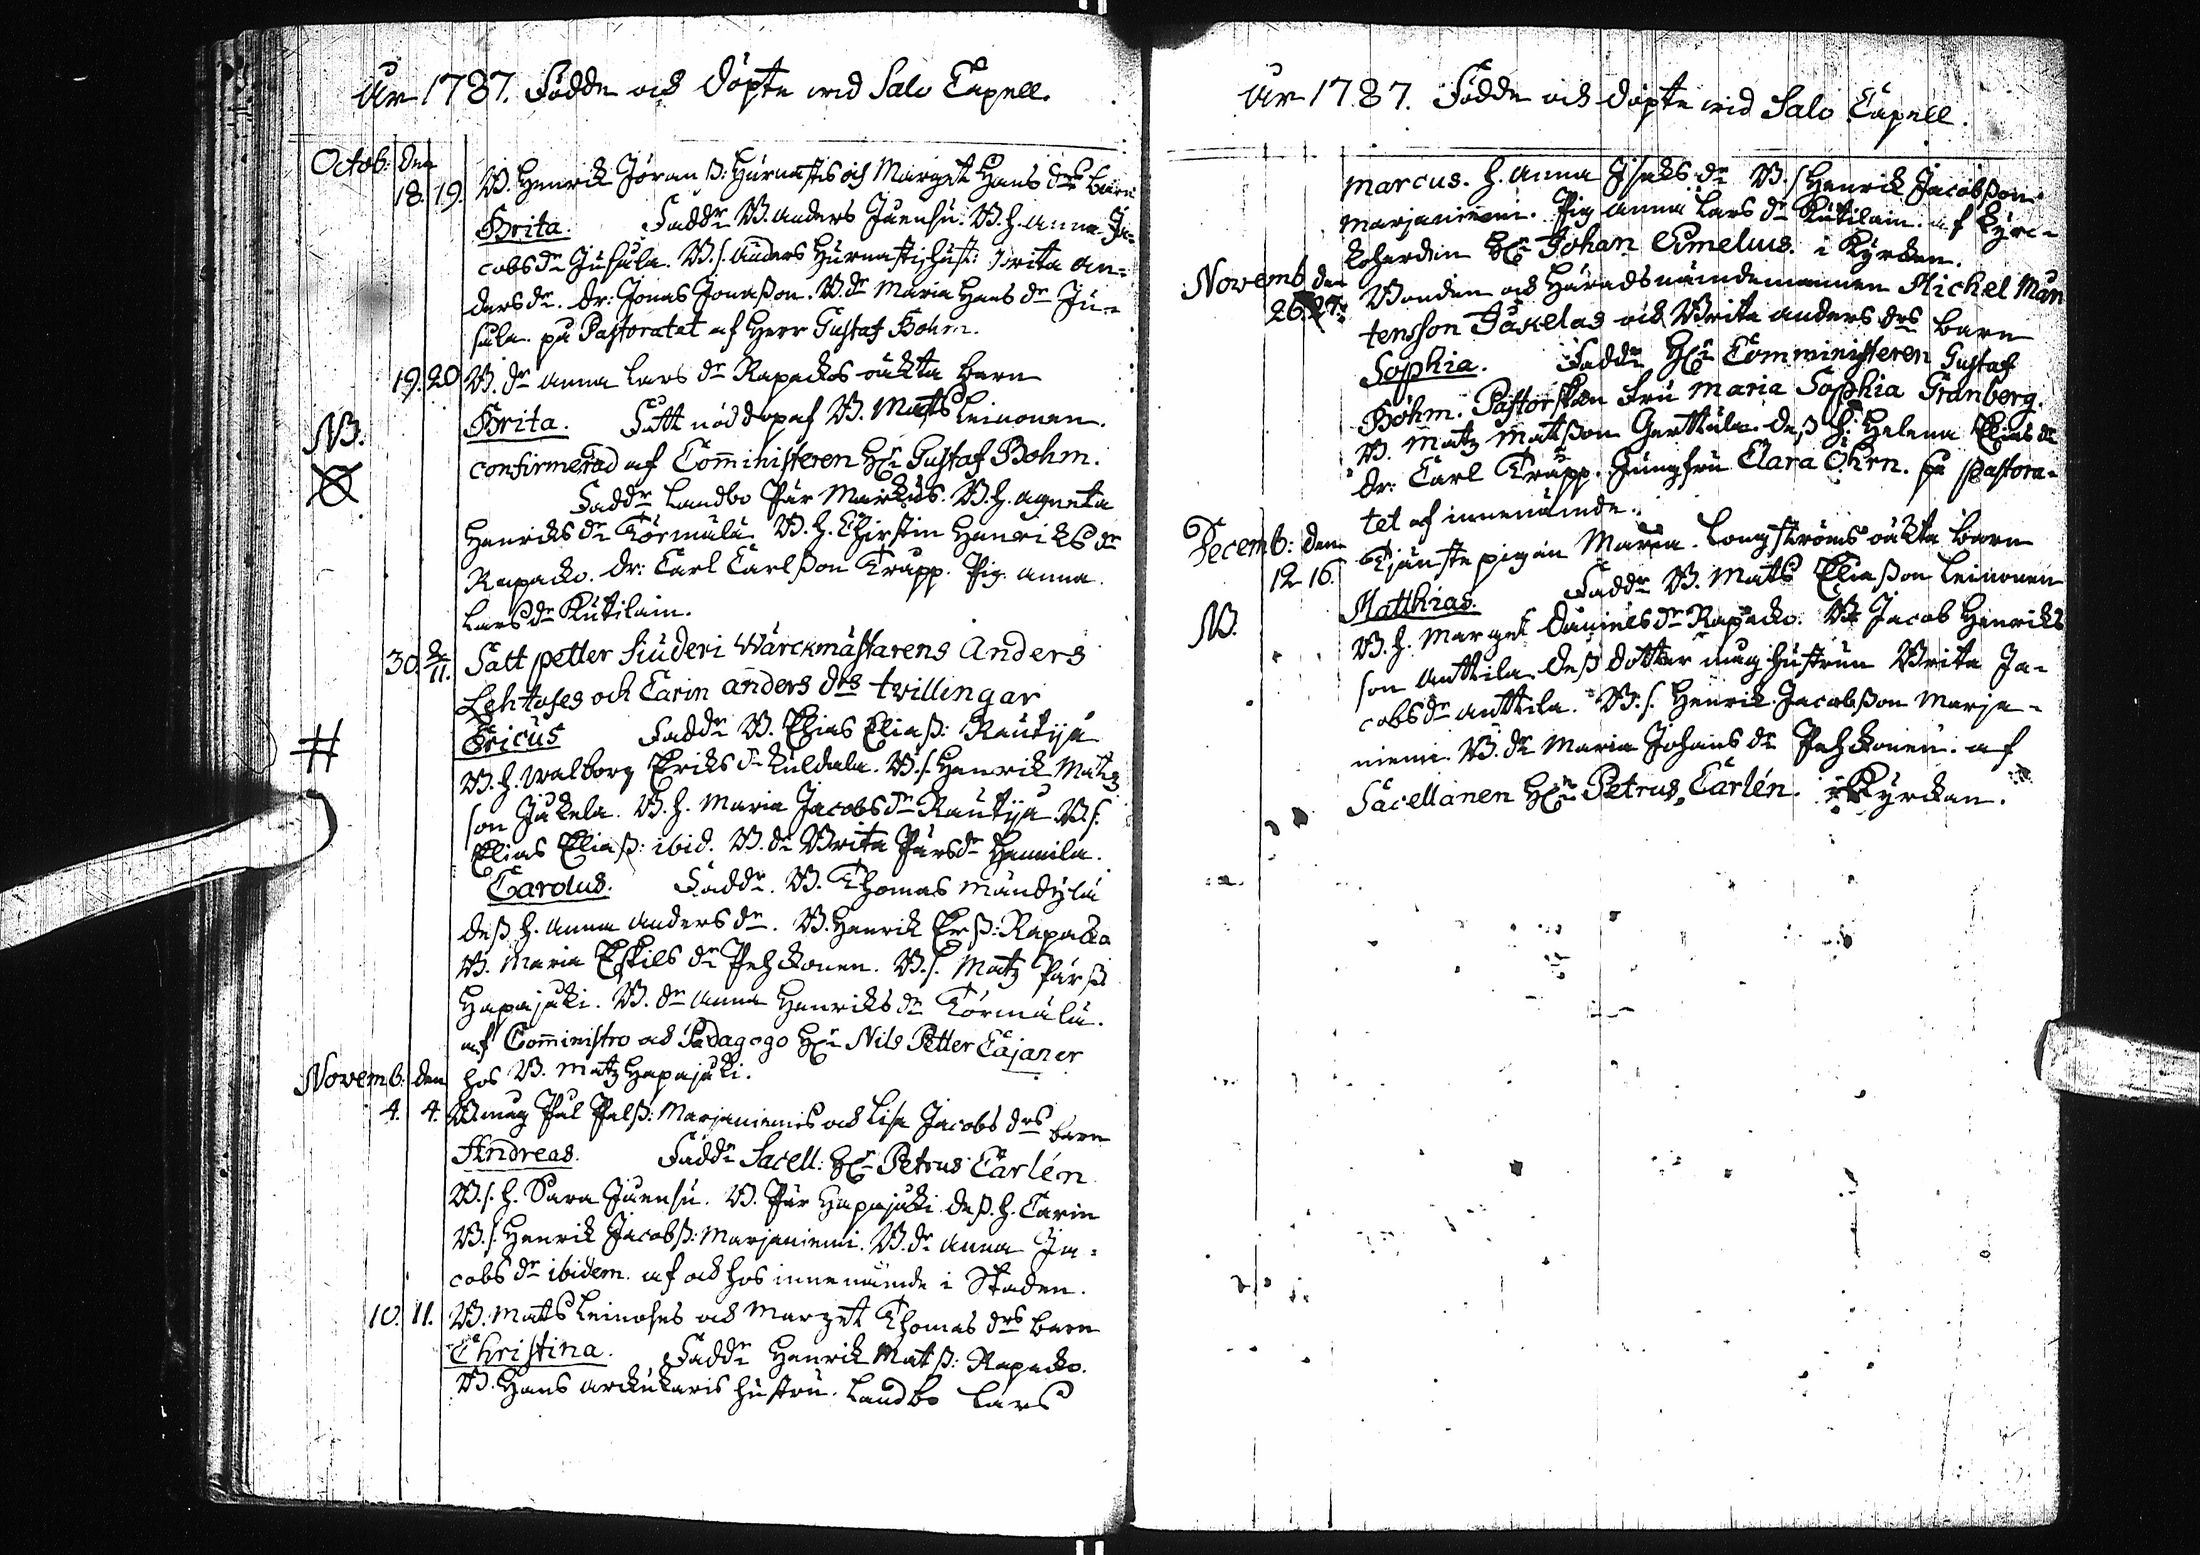 År 1787. Födde och Döpte wid Salo Capell.
Octob: den
18. 19. B. Henrik Jöranß: Hurnastis och Margeta Hans drs barn
Brita. Faddr B. Anders Juensu. B. h. Anna Ja-
cobs dr Jusula. B. s. Anders Hurnasti, hust: Brita An-
ders dr. Dr: Jonas Jonaßon. B. dr Maria Hans dr Ju-
sula. på Pastoratet af Herr Gustaf Bohm.
19. 20 B. dr Anna Lars dr Rapackos oäkta barn
NB. Brita. Fått nöddop af B. Mats Leinonen.
confirmerad af Comministeren Hr Gustaf Bohm.
Faddr Landbo Pär Markus. B. h. Agneta
Henriks dr Törmälä. B. h. Christin Henriks dr
Rapacko. Dr: Carl Carlßon Trapp. Pig. Anna
Lars dr Kutilain.
30. 2/11. Satt petter Siuderi Wärckmästarens Anders
Lehtoses och Carin Anders drs twillingar
# Ericus Faddr B. Elias Eliaß: Rautija
B. h. Walborg Eriks dr Kuldala. B. s. Henrik Matz
son Jäkela. B. h. Maria Jacobs dr Rautija B. s.
Elias Eliaß: ibid. B. dr Brita Pärs dr Hannila.
Carolus. Faddr. B. Thomas Mändylä
deß h. Anna Anders dr. B. Henrik Erß: Rapacko
B. Maria Eskils dr Pehckonen. B. s. Matz Pärß
Hapajäki. B. dr Anna Henriks dr Törmälä.
af Comministro och Pædagogo Hr Nils Petter Cajaner
hos B. Matz Hapajäki.
Novemb: den
4. 4. B. mag Pål Palß: Marjaniemis och Lisa Jacobs drs barn
Andreas. Faddr Sacell: Hr Petrus Carlén
B. s. h. Sara Juensu. B. Pär Hapajäki. deß. h. Carin
B. s. Henrik Jacobß: Marjaniemi. B. dr Anna Ja-
cobs dr ibidem. af och hos innenämde i Staden.
10. 11. B. Mats Leinoses och Marget Thomas drs barn
Christina. Faddr Henrik Matß: Rapacko.
B. Hans Arckukaris hustru. Landbo Lars
År 1787. Födde och döpte wid Salo Capell.
Marcus. h. Anna Isaks dr B. s. Henrik Jacobßon
Marjaniemi. Pig Anna Lars dr Kutilain. af Kyrc-
koherden Hr Johan Cimelius. i Kyrckan.
Novemb den
26. 27. Bonden och Häradsnämdemannen Michel Mån
tensson Jäkelas och Brita Anders drs barn
Sophia. Faddr Hr Comministeren Gustaf
Bohm. Pastorskan Fru Maria Sophia Granberg.
B. Matz Matßon Gerttula. deß h: Helena Elias dr
Dr: Carl Trapp. Jungfru Clara Öhrn. på pastora-
tet af innenämde.
Decemb: den
12 16. Tjänstepigan Maria Longströms oäkta barn
NB. Matthias. Faddr B. Mats Eliaßon Leinonen
B. h. Marget Daniels dr Rapacko. B. Jacob Henriks
son Anttila. deß dotter mag hustrun Brita Ja-
cobs dr Anttila. B. s. Henrik Jacobßon Marja-
niemi. B. dr Maria Johans dr Pehckonen. af
Sacellanen Hr Petrus Carlén. i Kyrckan.